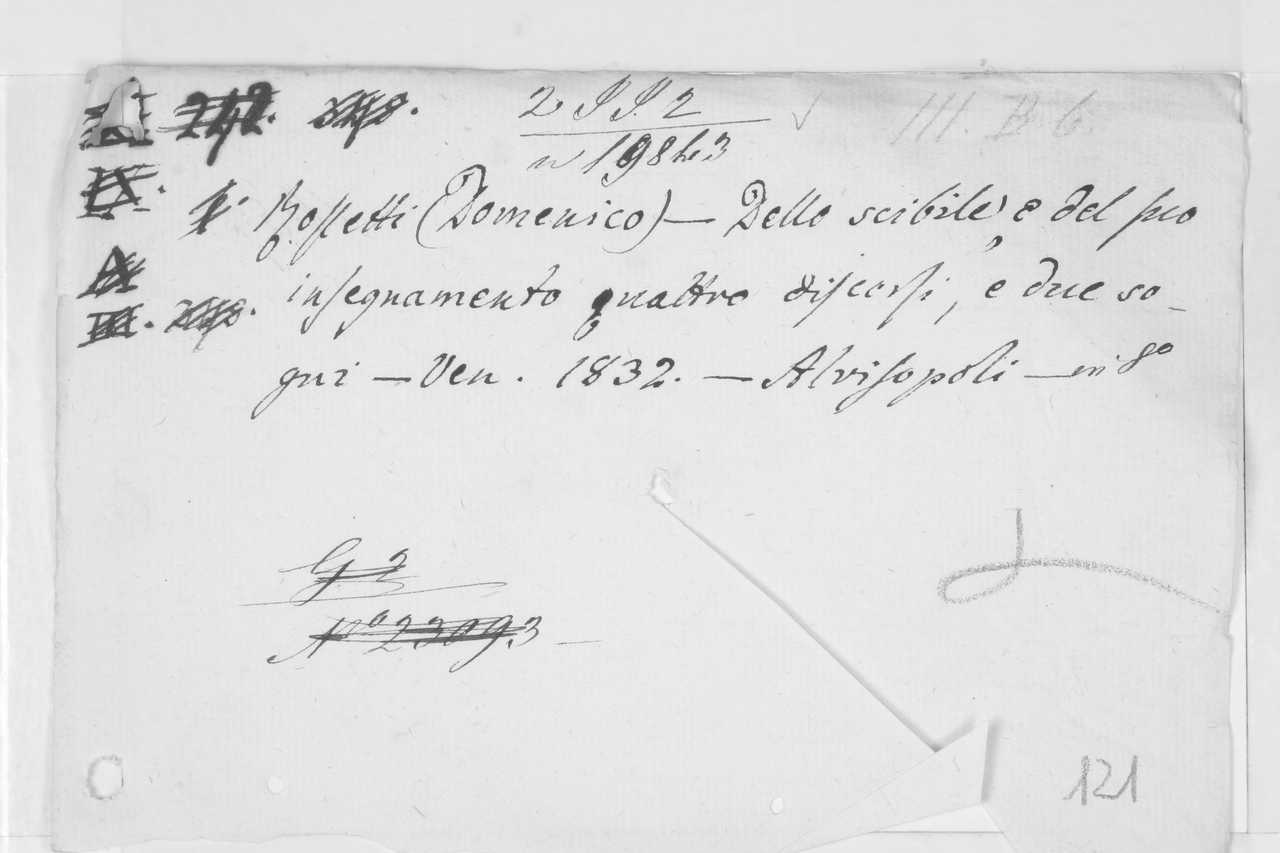 2 II. 2
III. B. 6.
Rossetti (Domenico) — Dello scibile, e del suo
insegnamento quattro discorsi, e due so-
gni — Ven. 1832. — Alvisopoli — in 8o
G 2
No 23093 —
121